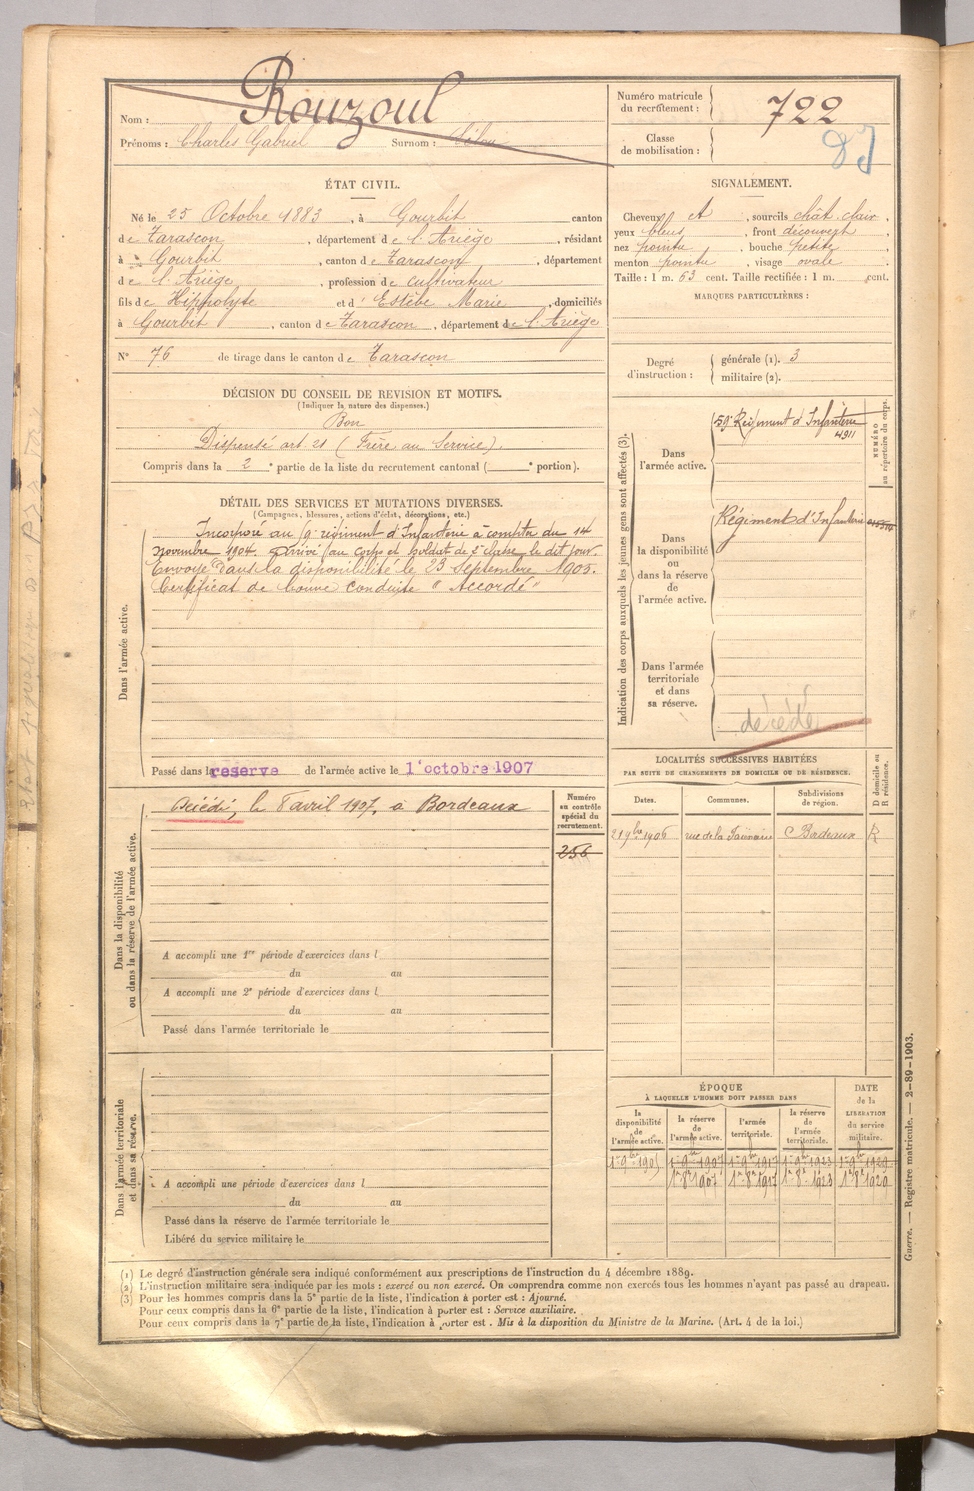 Nom : Rouzoul
Prénoms : Charles Gabriel Surnom :
Numéro matricule du recrutement : 722
Classe de mobilisation :
ÉTAT CIVIL.
Né le 25 Octobre 1883, à Gourbit canton
de Tarascon, département de l'Ariège, résidant
à Gourbit, canton de Tarascon, département
de l'Ariège, profession de cultivateur
fils de Hippolyte et d' Estèbe Marie, domiciliés
à Gourbit, canton de Tarascon, département de l'Ariège
N° 76 de tirage dans le canton de Tarascon
SIGNALEMENT.
Cheveux et, sourcils chât. clair,
yeux bleus, front découvert,
nez pointu, bouche petite,
menton pointu, visage ovale.
Taille : 1 m. 63 cent. Taille rectifiée : 1 m. cent.
MARQUES PARTICULIÈRES :
Degré d'instruction : générale (1). 3
militaire (2).
DÉCISION DU CONSEIL DE REVISION ET MOTIFS.
(Indiquer la nature des dispenses.)
Bon
Dispensé art. 21 (Frère au Service)
Compris dans la 2e partie de la liste du recrutement cantonal ( e portion).
DÉTAIL DES SERVICES ET MUTATIONS DIVERSES.
(Campagnes, blessures, actions d'éclat, décorations, etc.)
Dans l'armée active.
Incorporé au régiment d'Infanterie à compter du 14
novembre 1904. Arrivé au corps et soldat de 2e classe le dit jour.
Envoyé dans la disponibilité le 23 Septembre 1905.
Certificat de bonne conduite "Accordé"
Passé dans la reserve de l'armée active le 1 octobre 1907
Indication des corps auxquels les jeunes gens sont affectés (3).
NUMÉRO au répertoire du corps.
Dans l'armée active.
59e Régiment d'Infanterie
4911
Dans la disponibilité ou dans la réserve de l'armée active.
Régiment d'Infanterie
Dans l'armée territoriale et dans sa réserve.
décédé
LOCALITÉS SUCCESSIVES HABITÉES
PAR SUITE DE CHANGEMENTS DE DOMICILE OU DE RÉSIDENCE.
Dates. Communes. Subdivisions de région. D domicile ou R résidence.
1906 rue de la Bordeaux R
Dans la disponibilité ou dans la réserve de l'armée active.
Décédé, le 8 avril 1907, à Bordeaux
Numéro au contrôle spécial du recrutement.
256
A accompli une 1re période d'exercices dans l
du au
A accompli une 2e période d'exercices dans l
du au
Passé dans l'armée territoriale le
Dans l'armée territoriale et dans sa réserve.
A accompli une période d'exercices dans l
du au
Passé dans la réserve de l'armée territoriale le
Libéré du service militaire le
ÉPOQUE
À LAQUELLE L'HOMME DOIT PASSER DANS
la disponibilité de l'armée active. la réserve de l'armée active. l'armée territoriale. la réserve de l'armée territoriale. DATE de la LIBÉRATION du service militaire.
1907 1917 1923 1929
(1) Le degré d'instruction générale sera indiqué conformément aux prescriptions de l'instruction du 4 décembre 1889.
(2) L'instruction militaire sera indiquée par les mots : exercé ou non exercé. On comprendra comme non exercés tous les hommes n'ayant pas passé au drapeau.
(3) Pour les hommes compris dans la 5e partie de la liste, l'indication à porter est : Ajourné.
Pour ceux compris dans la 6e partie de la liste, l'indication à porter est : Service auxiliaire.
Pour ceux compris dans la 7e partie de la liste, l'indication à porter est : Mis à la disposition du Ministre de la Marine. (Art. 4 de la loi.)
Guerre. — Registre matricule. — 2-89-1903.